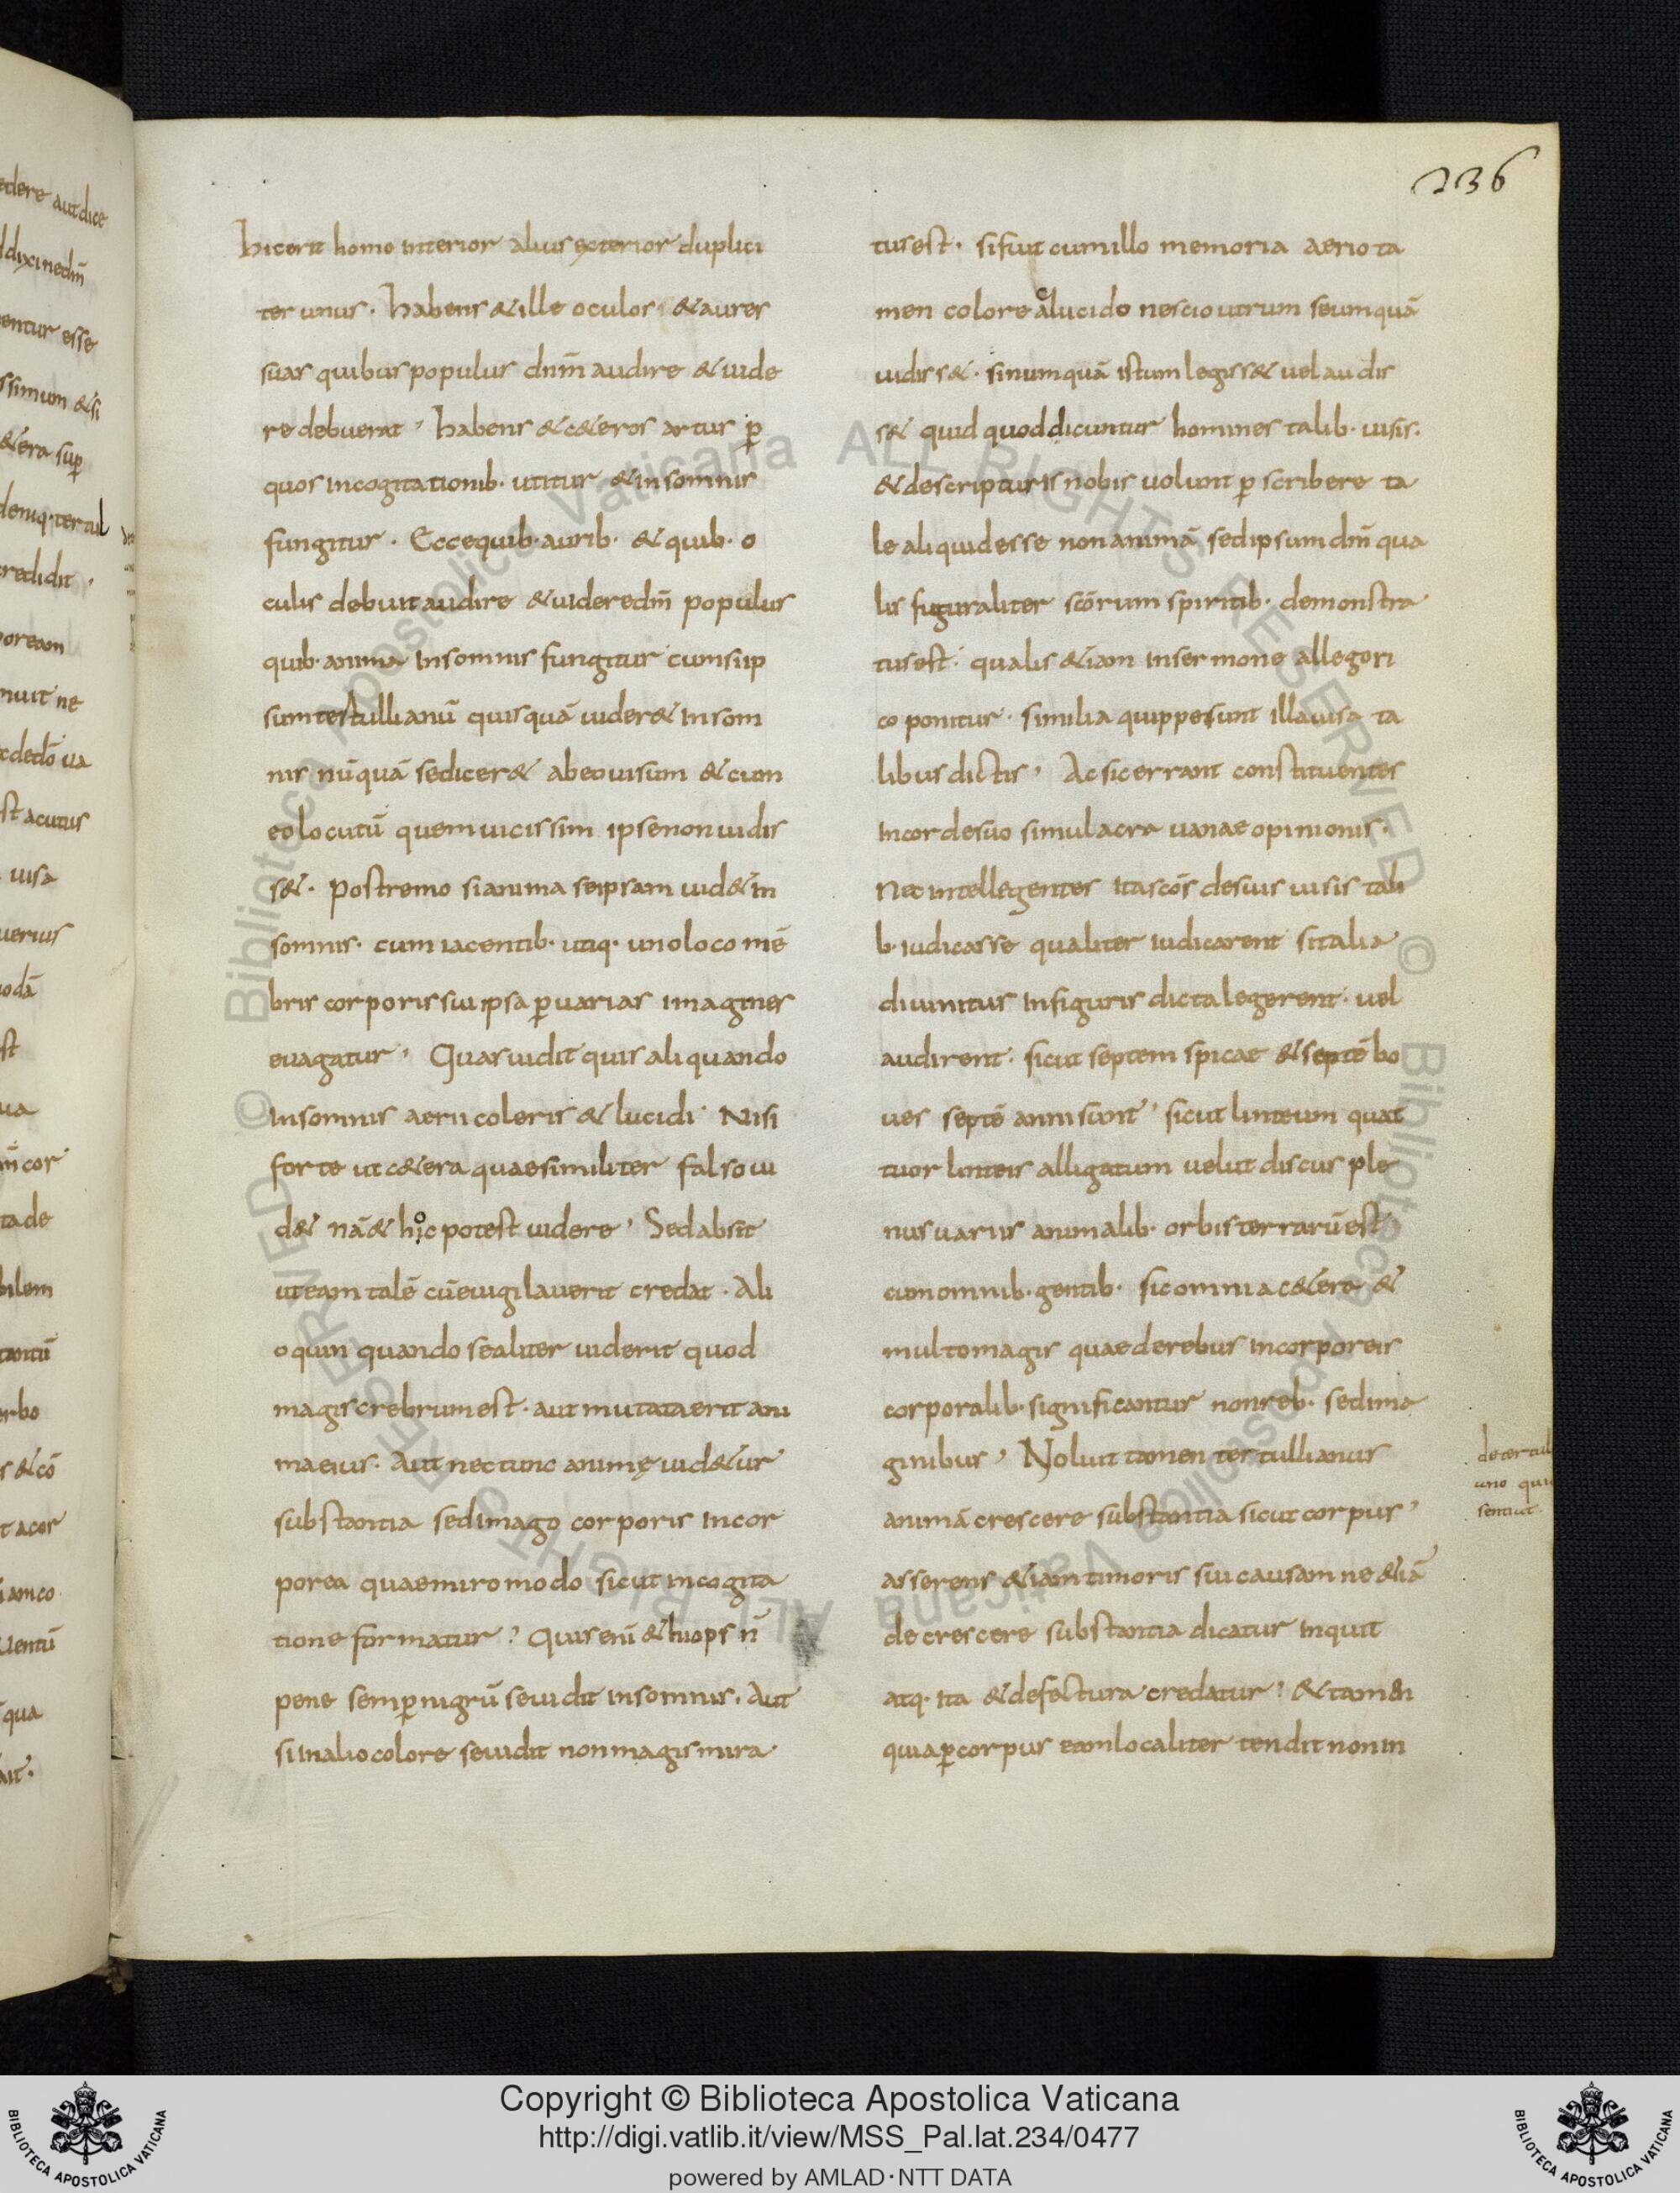 236
hicerit homo interior alius exterior duplici
ter unus · habens & ille oculos & aures
suas quibus populus dnm̄ audire & uide
re debuerat , habens & c&eros artus p̄
quos incogitationib· utitur & in somnis
fungitur · Eccequib· aurib· & quib· o
culis debuit audire & uideredm̄ populus
quib· anima insomnis fungitur cumsiip
sumtertullianū quisquā uider& insom
nis nūquā sedicer& abeouisum & cum
eolocutū quemuicissim ipsenonuidis
s& · postremo sianima seipsam uid& in
somnis · cum iacentib· utiq· unoloco mē
bris corporis sui ipsa p̄uarias imagines
euagatur , Quas uidit quis aliquando
insomnis aerii coleris & lucidi · Nisi
forte ut c&era quaesimiliter falsoui
d& nā& hic potest uidere , Sedabsit
uteam talē cūeuigilauerit credat · Ali
oquin quando sealiter uiderit quod
magiscrebrumest · aut mutataerit ani
maeius · Aut nectunc animę uid&ur
substantia sedimago corporis incor
porea quaemiromodo sicut incogita
tione formatur ? Quis enī &hiops n̄
pene semp̄nigrū seuidit insomnis · Aut
sinaliocolore seuidit nonmagismira
tusest · sifuit cumillo memoria aerio ta
men colore alucido nescioutrum seumquā
uidiss& · sinumquā istum legiss& uelaudis
s& quid quoddicuntur homines talib· uisis ·
& descripturis nobis uolunt p̄scribere ta
le aliquidesse nonanimā sedipsumdm̄ qua
lis figuraliter scōrum spiritib· demonstra
tusest · qualis &iam insermone allegori
co ponitur · similia quippesunt illauisa ta
libusdictis , Acsicerrant constituentes
incordesuo simulacra uanaeopinionis ·
Nec intellegentes itascōs desuis uisis tali
b· iudicasse qualiter iudicarent sitalia
diuinitus infiguris dictalegerent · uel
audirent · sicut septem spicae & septē bo
ues septē annisunt , sicut linteum quat
tuor linteis alligatum uelut discus ple
nusuariis animalib· orbisterrarūest
cumomnib· gentib· sicomnia c&era &
multomagis quaederebus incorporeis
corporalib· significantur nonreb· sedima
ginibus , Noluit tamen tertullianus
animā crescere substantia sicut corpus ,
asserens &iamtimoris sui causam ne &iā
decrescere substantia dicatur inquit
atq· ita & defectura credatur ? & tamen
quiap̄corpus eamlocaliter tendit nonin
detertul
uno qui
sentiat
Copyright © Biblioteca Apostolica Vaticana
http://digi.vatlib.it/view/MSS_Pal.lat.234/0477
powered by AMLAD·NTT DATA